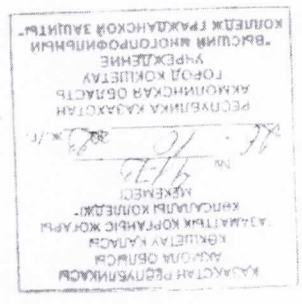 ҚАЗАҚСТАН РЕСПУБЛИКАСЫ
АҚМОЛА ОБЛЫСЫ
КӨКШЕТАУ ҚАЛАСЫ
"АЗАМАТТЫҚ ҚОРҒАНЫС ЖОҒАРЫ
КӨПСАЛАЛЫ КОЛЛЕДЖІ"
МЕКЕМЕСІ
№
10
РЕСПУБЛИКА КАЗАХСТАН
АКМОЛИНСКАЯ ОБЛАСТЬ
ГОРОД КОКШЕТАУ
УЧРЕЖДЕНИЕ
"ВЫСШИЙ МНОГОПРОФИЛЬНЫЙ
КОЛЛЕДЖ ГРАЖДАНСКОЙ ЗАЩИТЫ"